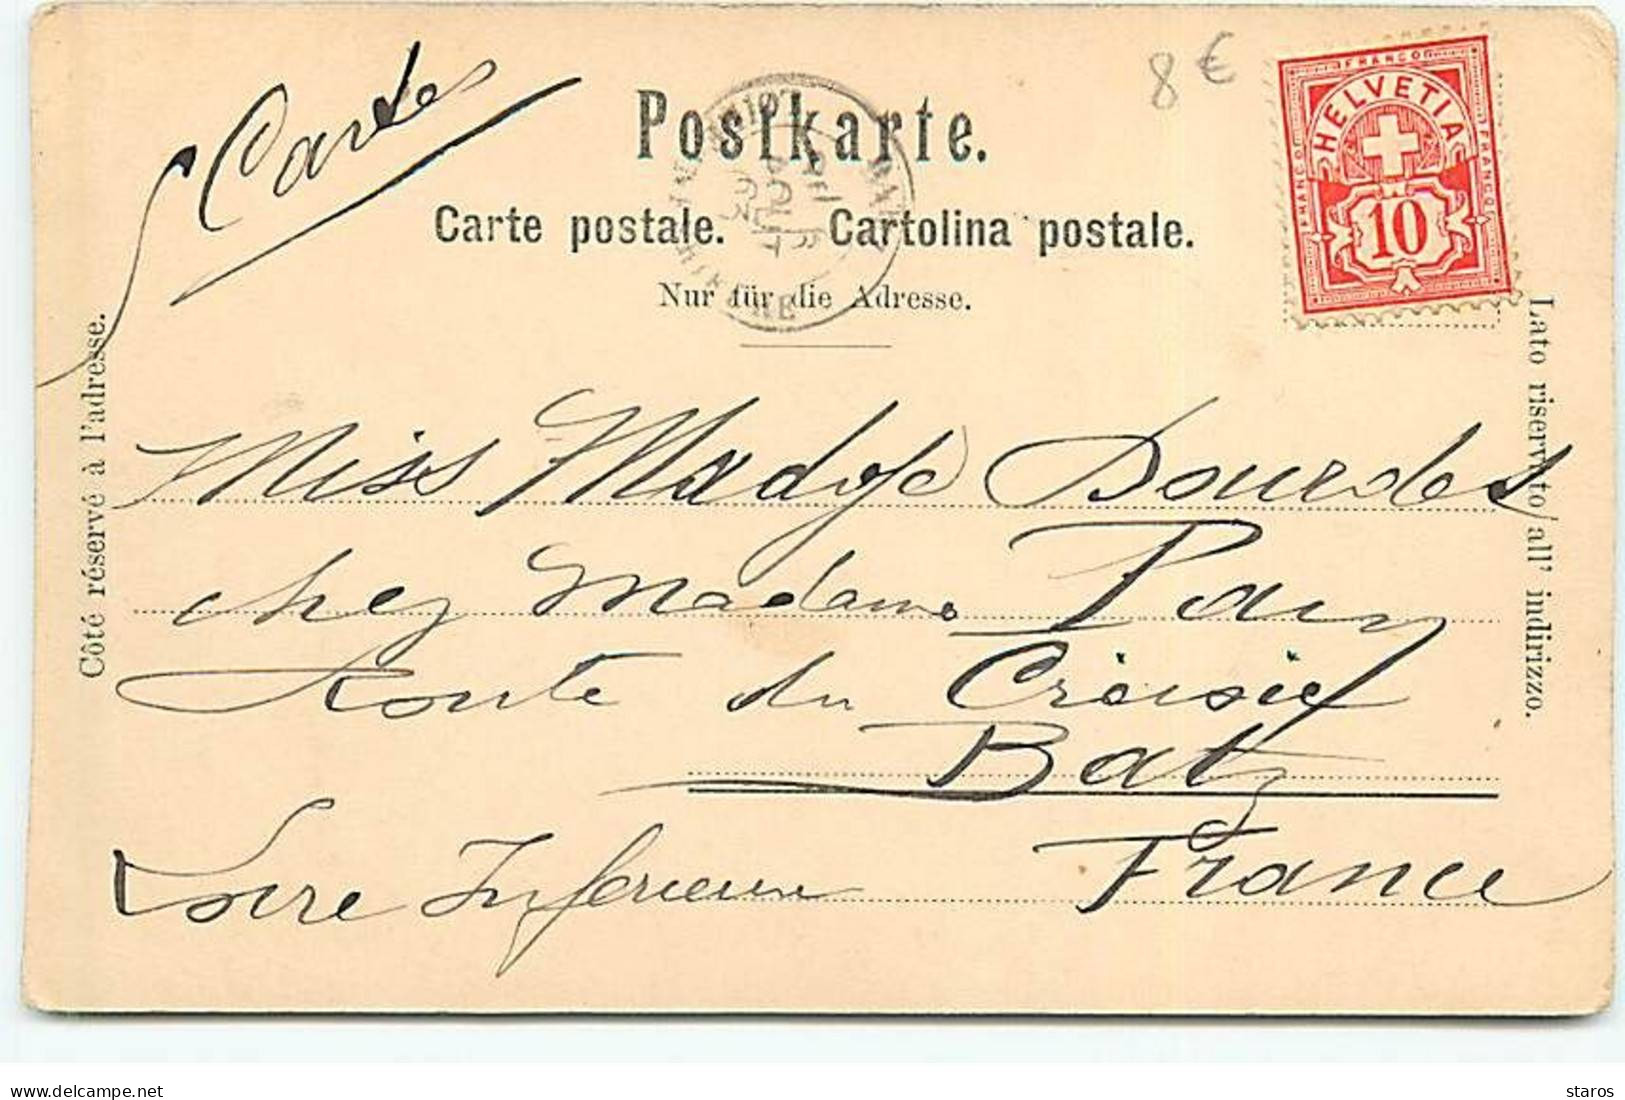 Carte
8 €
Postkarte.
Carte postale. Cartolina postale.
Nur für die Adresse.
FRANCO
HELVETIA
FRANCO
FRANCO
10
Côté réservé à l'adresse.
Lato riservato all' indirizzo.
Miss Madge Dourdes
chez Madame
Route du Croisic
Batz
Loire Inferieure France
delcampe.net
staros